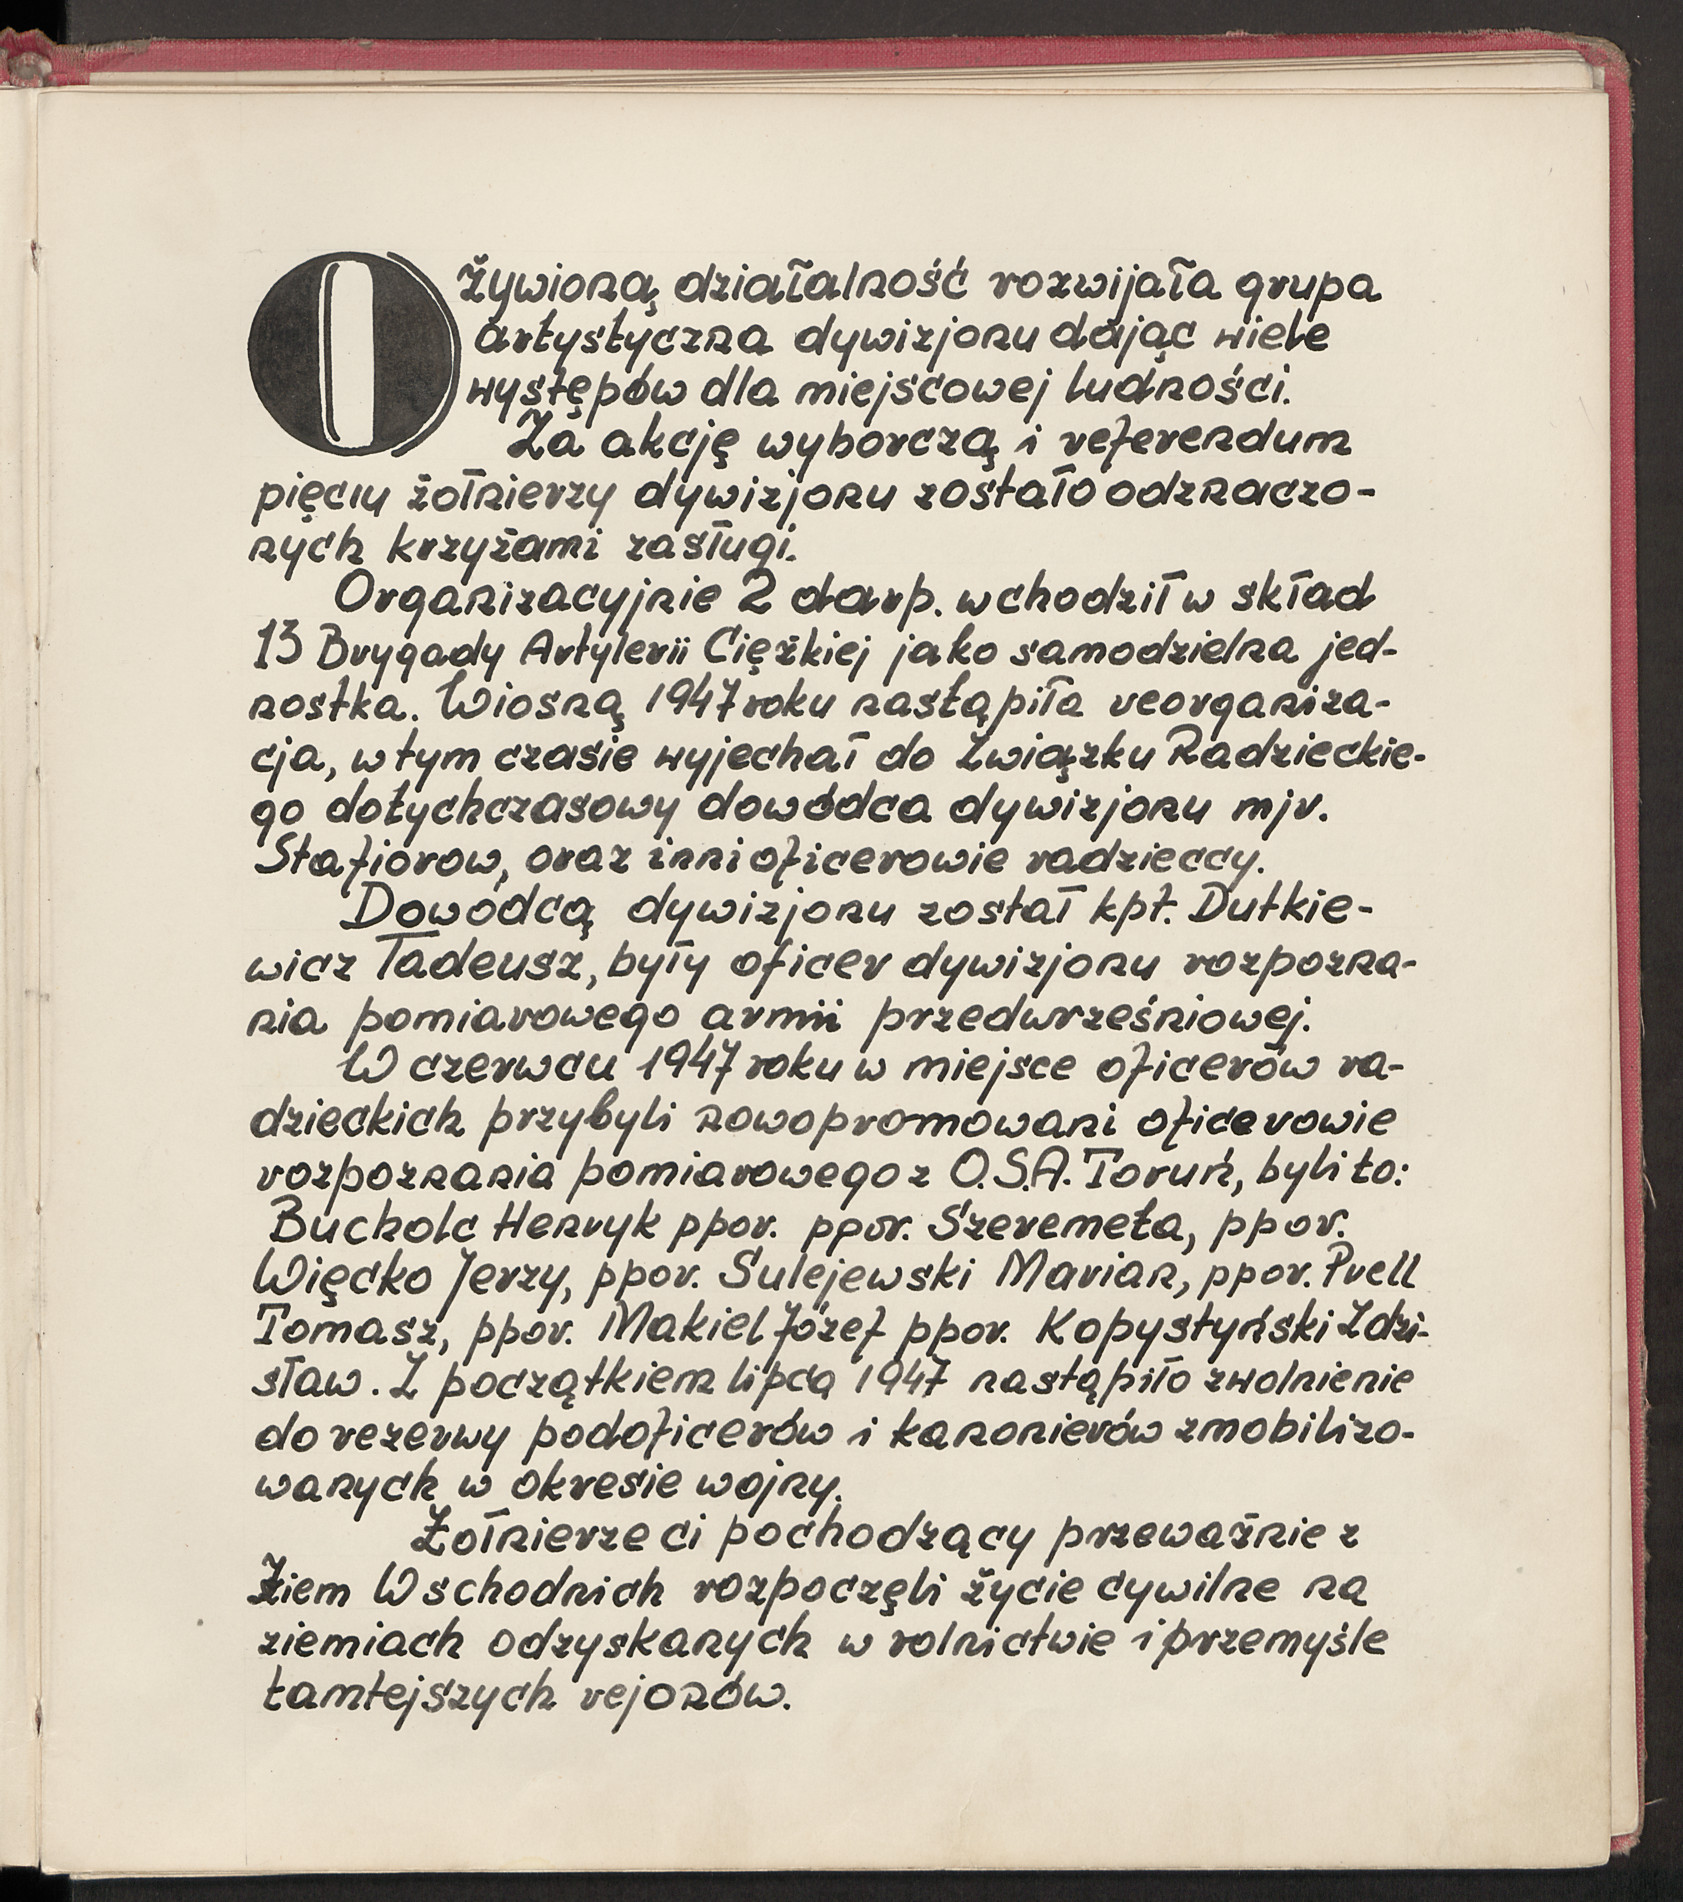 Ożywioną działalność rozwijała grupa
artystyczna dywizjonu dając wiele
występów dla miejscowej ludności.
Za akcję wyborczą i referendum
pięciu żołnierzy dywizjonu zostało odznaczo-
nych krzyżami zasługi.
Organizacyjnie 2 darp. wchodził w skład
13 Brygady Artylerii Ciężkiej jako samodzielna jed-
nostka. Wiosną 1947 roku nastąpiła reorganiza-
cja, w tym czasie wyjechał do Związku Radzieckie-
go dotychczasowy dowódca dywizjonu mjr.
Stafiorow, oraz inni oficerowie radzieccy.
Dowódcą dywizjonu został kpt. Dutkie-
wicz Tadeusz, były oficer dywizjonu rozpozna-
nia pomiarowego armii przedwrześniowej.
W czerwcu 1947 roku w miejsce oficerów ra-
dzieckich przybyli nowopromowani oficerowie
rozpoznania pomiarowego z O.S.A. Toruń, byli to:
Bucholc Henryk ppor. ppor. Szeremeta, ppor.
Więcko Jerzy, ppor. Sulejewski Marian, ppor. Prell
Tomasz, ppor. Makiel Józef ppor. Kopystyński Zdzi-
sław. Z początkiem lipca 1947 nastąpiło zwolnienie
do rezerwy podoficerów i kanonierów zmobilizo-
wanych w okresie wojny.
Żołnierze ci pochodzący przeważnie z
Ziem Wschodnich rozpoczęli życie cywilne na
ziemiach odzyskanych w rolnictwie i przemyśle
tamtejszych rejonów.